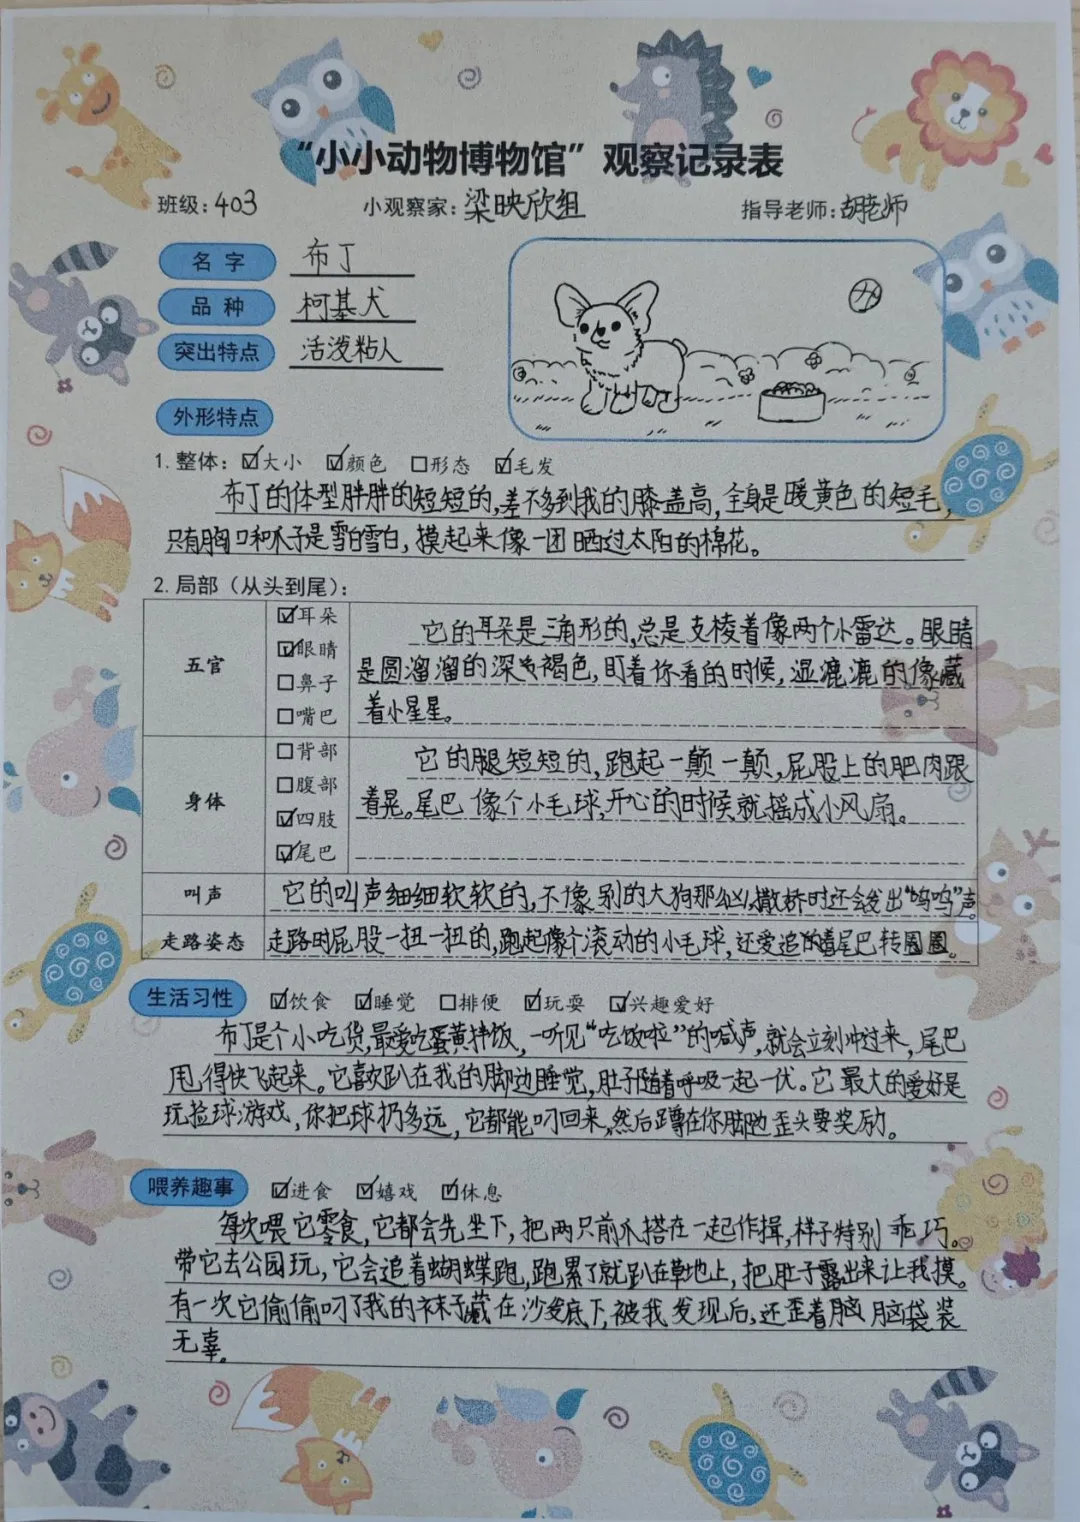 “小小动物博物馆”观察记录表
班级：403 小观察家：梁映欣组 指导老师：胡老师
名字 布丁
品种 柯基犬
突出特点 活泼粘人
外形特点
1.整体：☑大小 ☑颜色 □形态 ☑毛发
布丁的体型胖胖的短短的，差不多到我的膝盖高，全身是暖黄色的短毛，
只有胸口和爪子是雪白雪白，摸起来像一团晒过太阳的棉花。
2.局部（从头到尾）：
五官
☑耳朵
☑眼睛
□鼻子
□嘴巴
它的耳朵是三角形的，总是支棱着像两个小雷达。眼睛
是圆溜溜的深褐色，盯着你看的时候，湿漉漉的像藏
着小星星。
身体
□背部
□腹部
☑四肢
☑尾巴
它的腿短短的，跑起一颠一颠，屁股上的肥肉跟
着晃。尾巴像个小毛球，开心的时候就摇成小风扇。
叫声 它的叫声细细软软的，不像别的大狗那么凶，撒娇时还会发出“呜呜”声。
走路姿态 走路时屁股一扭一扭的，跑起像个滚动的小毛球，还爱追着尾巴转圈圈。
生活习性 ☑饮食 ☑睡觉 □排便 ☑玩耍 ☑兴趣爱好
布丁是个小吃货，最爱吃蛋黄拌饭，一听见“吃饭啦”的喊声，就会立刻冲过来，尾巴
甩得快飞起来。它喜欢趴在我的脚边睡觉，肚子随着呼吸一起一伏。它最大的爱好是
玩捡球游戏，你把球扔多远，它都能叼回来，然后蹲在你脚边歪头要奖励。
喂养趣事 ☑进食 ☑嬉戏 ☑休息
每次喂它零食，它都会先坐下，把两只前爪搭在一起作揖，样子特别乖巧。
带它去公园玩，它会追着蝴蝶跑，跑累了就趴在草地上，把肚子露出来让我摸。
有一次它偷偷叼了我的袜子藏在沙发底下，被我发现后，还歪着脑脑袋装
无辜。